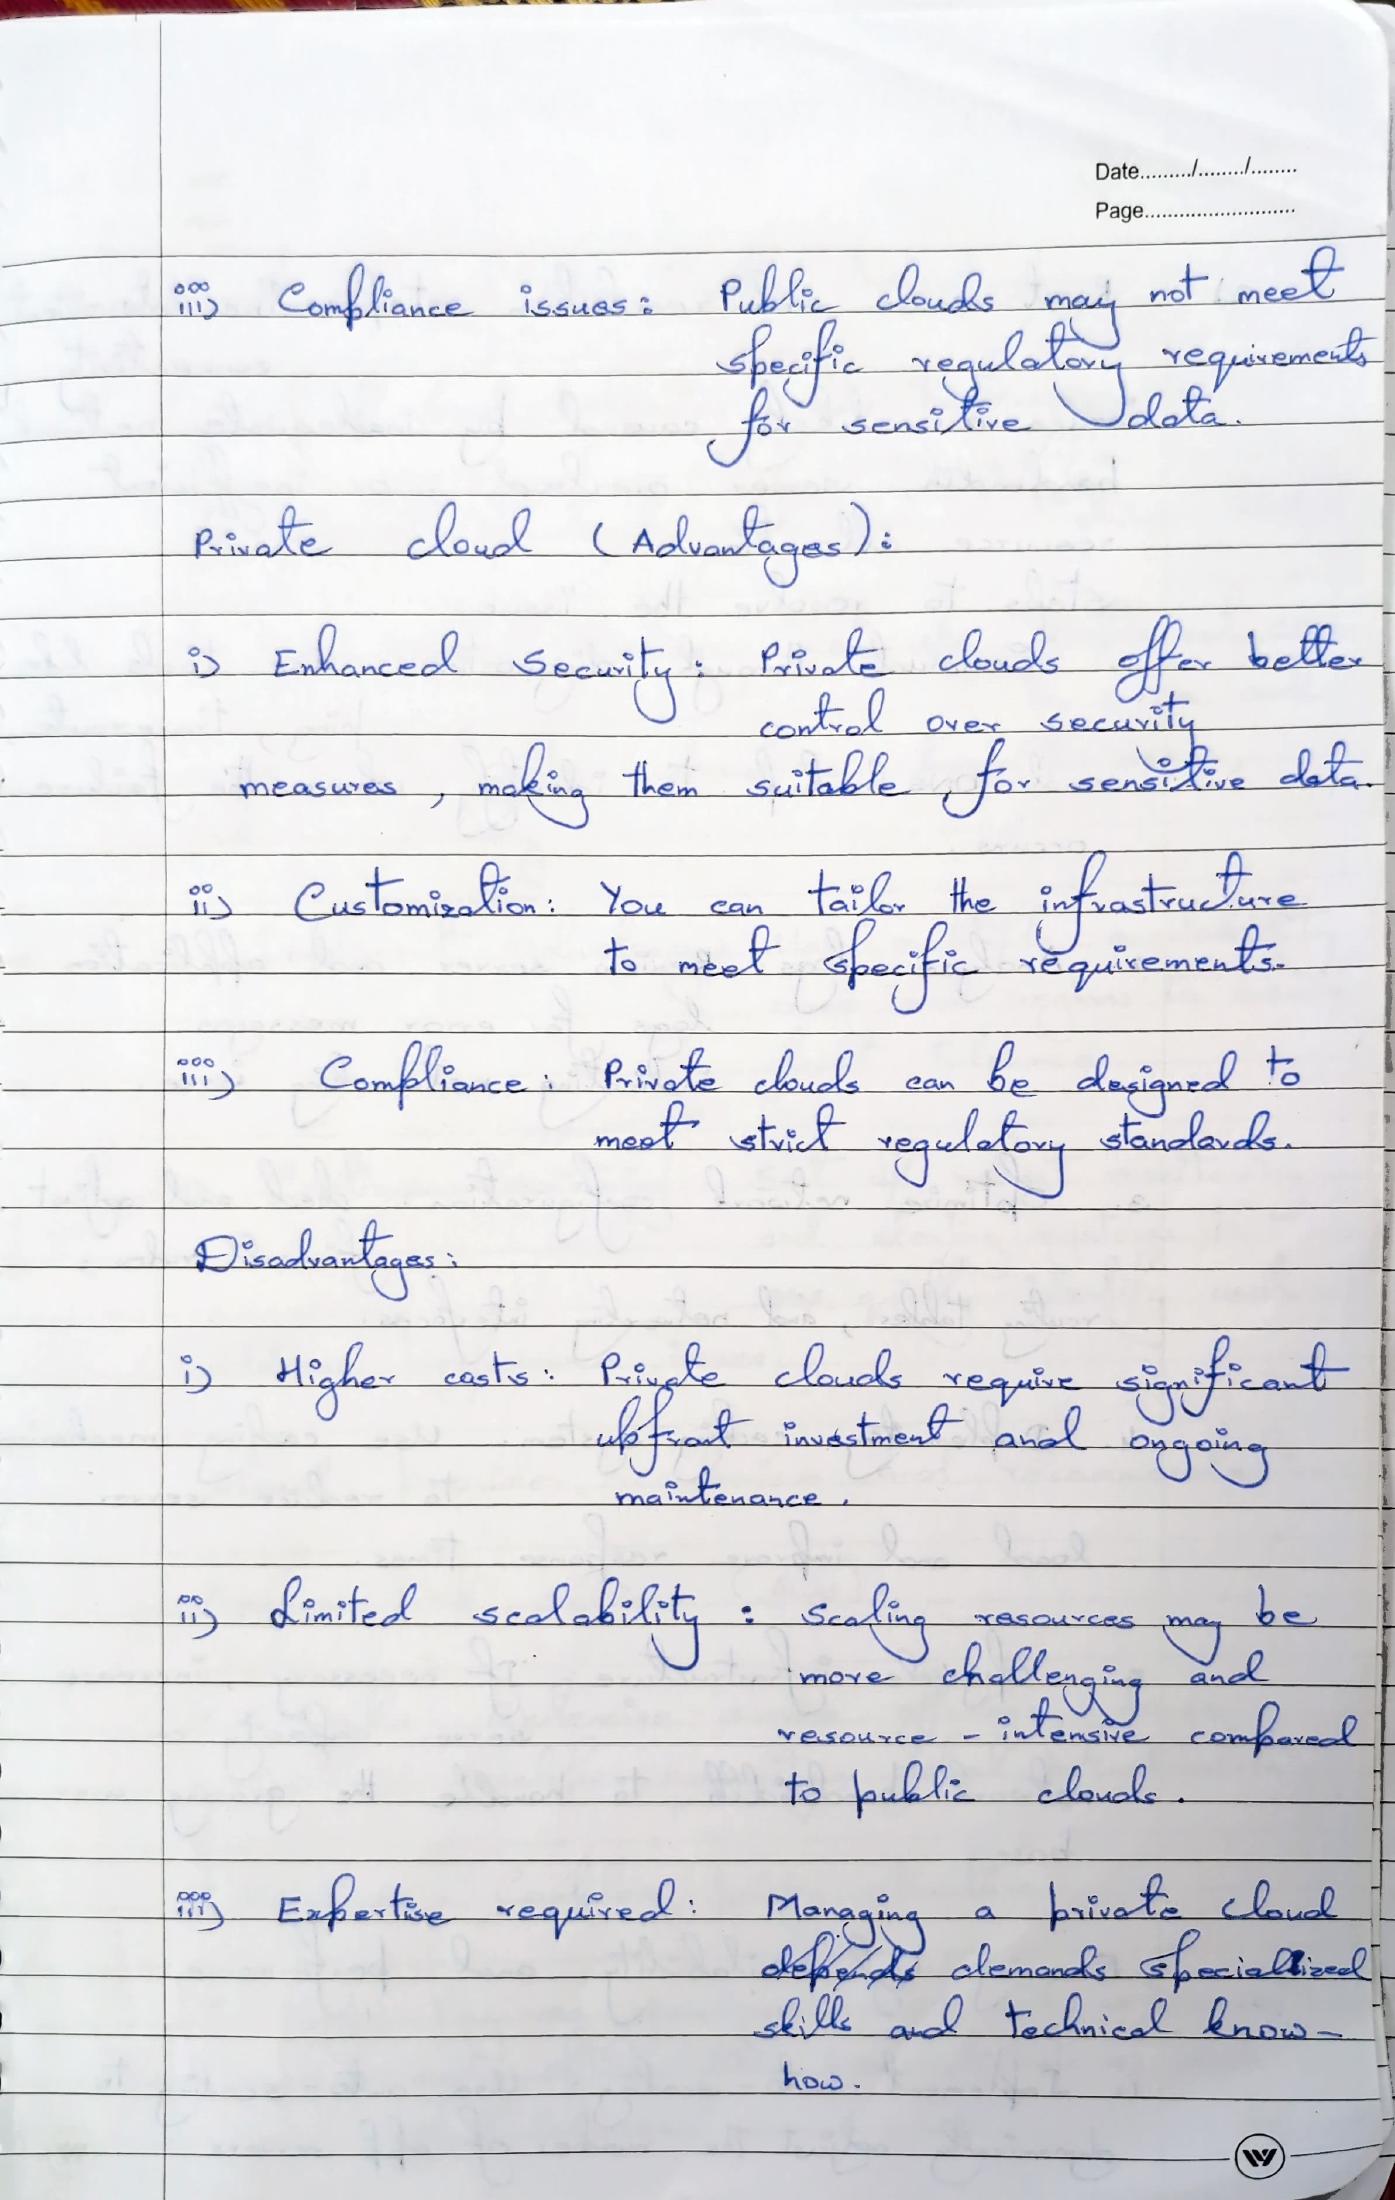 Date........./......../........
Page...........................
iii) Compliance issues: Public clouds may not meet
specific regulatory requirements
for sensitive data.
Private cloud (Advantages):
i) Enhanced security: Private clouds offer better
control over security
measures, making them suitable for sensitive data.
ii) Customization: You can tailor the infrastructure
to meet specific requirements.
iii) Compliance: Private clouds can be designed to
meet strict regulatory standards.
Disadvantages:
i) Higher costs: Private clouds require significant
upfront investment and ongoing
maintenance.
ii) Limited scalability: Scaling resources may be
more challenging and
resource-intensive compared
to public clouds.
iii) Expertise required: Managing a private cloud
depends demands specialized
skills and technical know-
how.
W